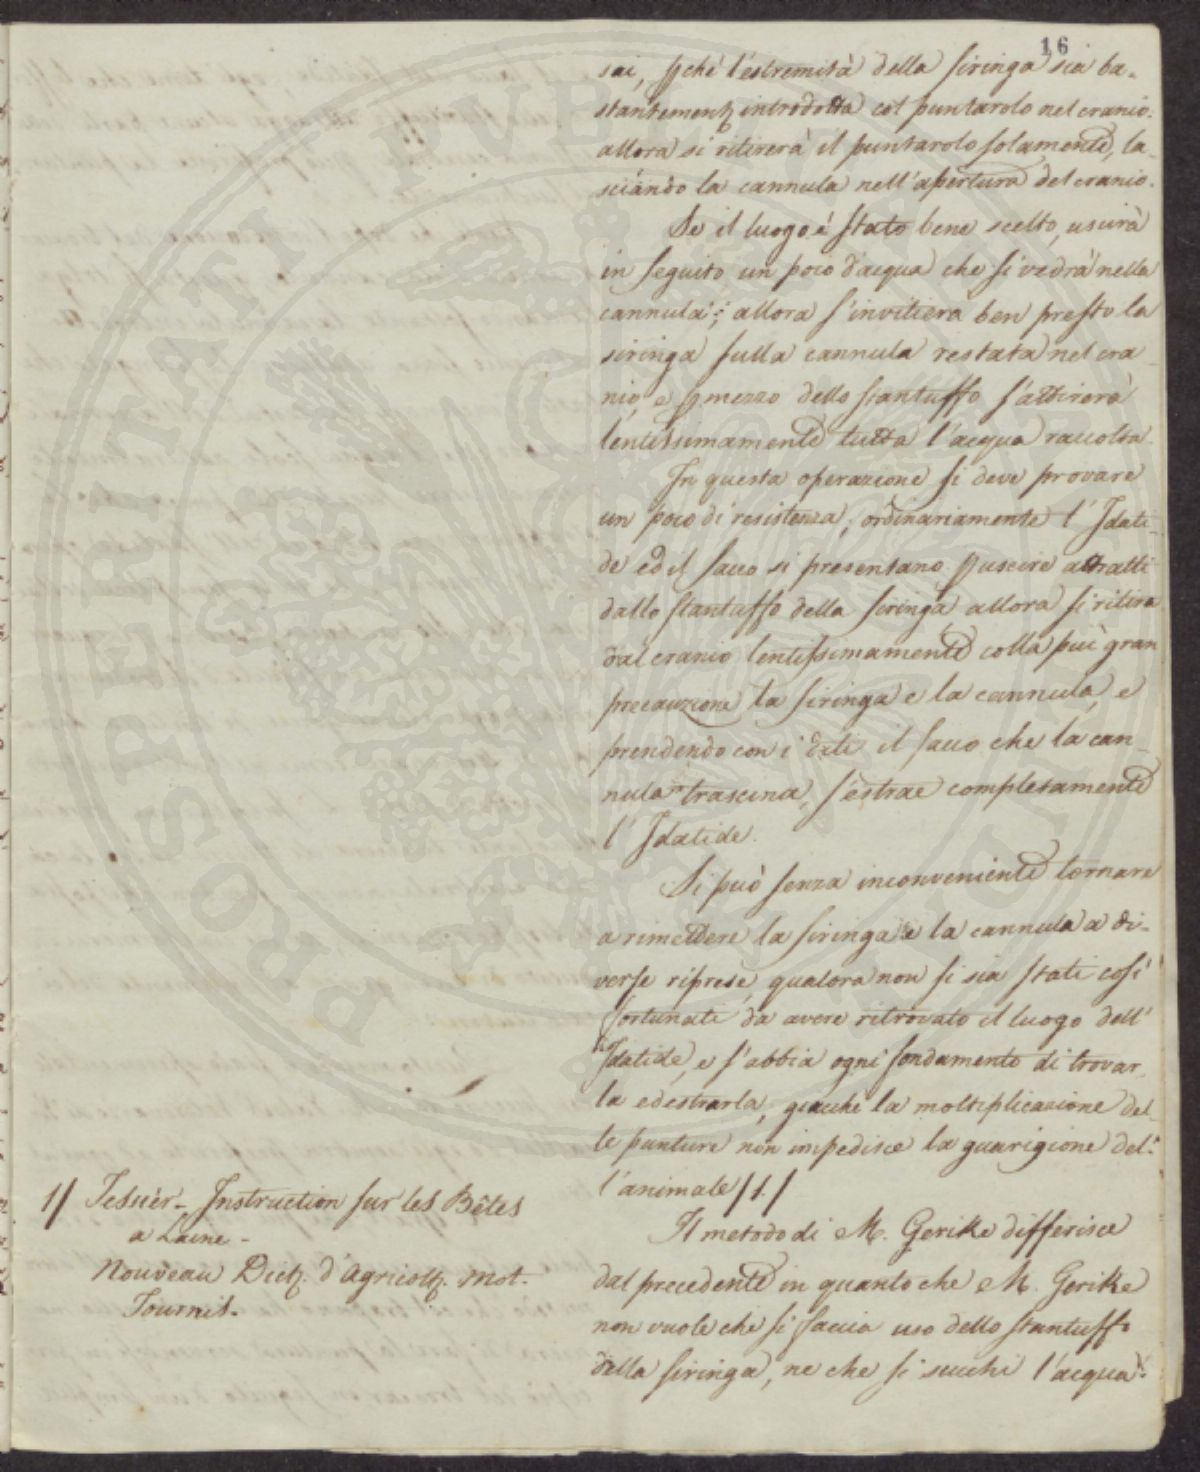 16
sai, pchè l'estremità della siringa sia ba-
stantementẹ introdotta col puntarolo nel cranio.
allora si ritirerà il puntarolo solamente, la-
sciando la cannula nell'apertura del cranio.
Se il luogo è stato bene scelto, uscirà
in seguito un poco d'acqua che si vedrà nella
cannula; allora s'inviterà ben presto la
siringa sulla cannula restata nel cra-
nio, e p mezzo dello stantuffo s'attirerà
lentissimamente tutta l'acqua raccolta.
In questa operazione si deve provare
un poco di resistenza; ordinariamente l'Idati-
de ed il sacco si presentano p uscire attratti
dallo stantuffo della siringa allora si ritira
dal cranio lentissimamente colla più gran
precauzione la siringa e la cannula, e
prendendo con i diti il sacco che la can-
nula trascina, s'estrae completamente
l'Idatide.
Si può senza inconveniente tornare
a rimettere la siringa e la cannula a di-
verse riprese, qualora non si sia stati così
fortunati da avere ritrovato il luogo dell'
Idatide, e s'abbia ogni fondamento di trovar-
la ed estrarla, giacchè la moltiplicazione del-
le punture non impedisce la guarigione del-
l'animale /1./
Il metodo di M. Gerike differisce
dal precedente in quanto che M. Gerike
non vuole che si faccia uso dello stantuffo
della siringa, ne che si succhi l'acqua:
1/ Tessier - Instruction sur les Bêtes
a Laine -
Nouveau Dict. d'Agricolt. mot.
Tournis.
PROSPERITATI PUBLICAE